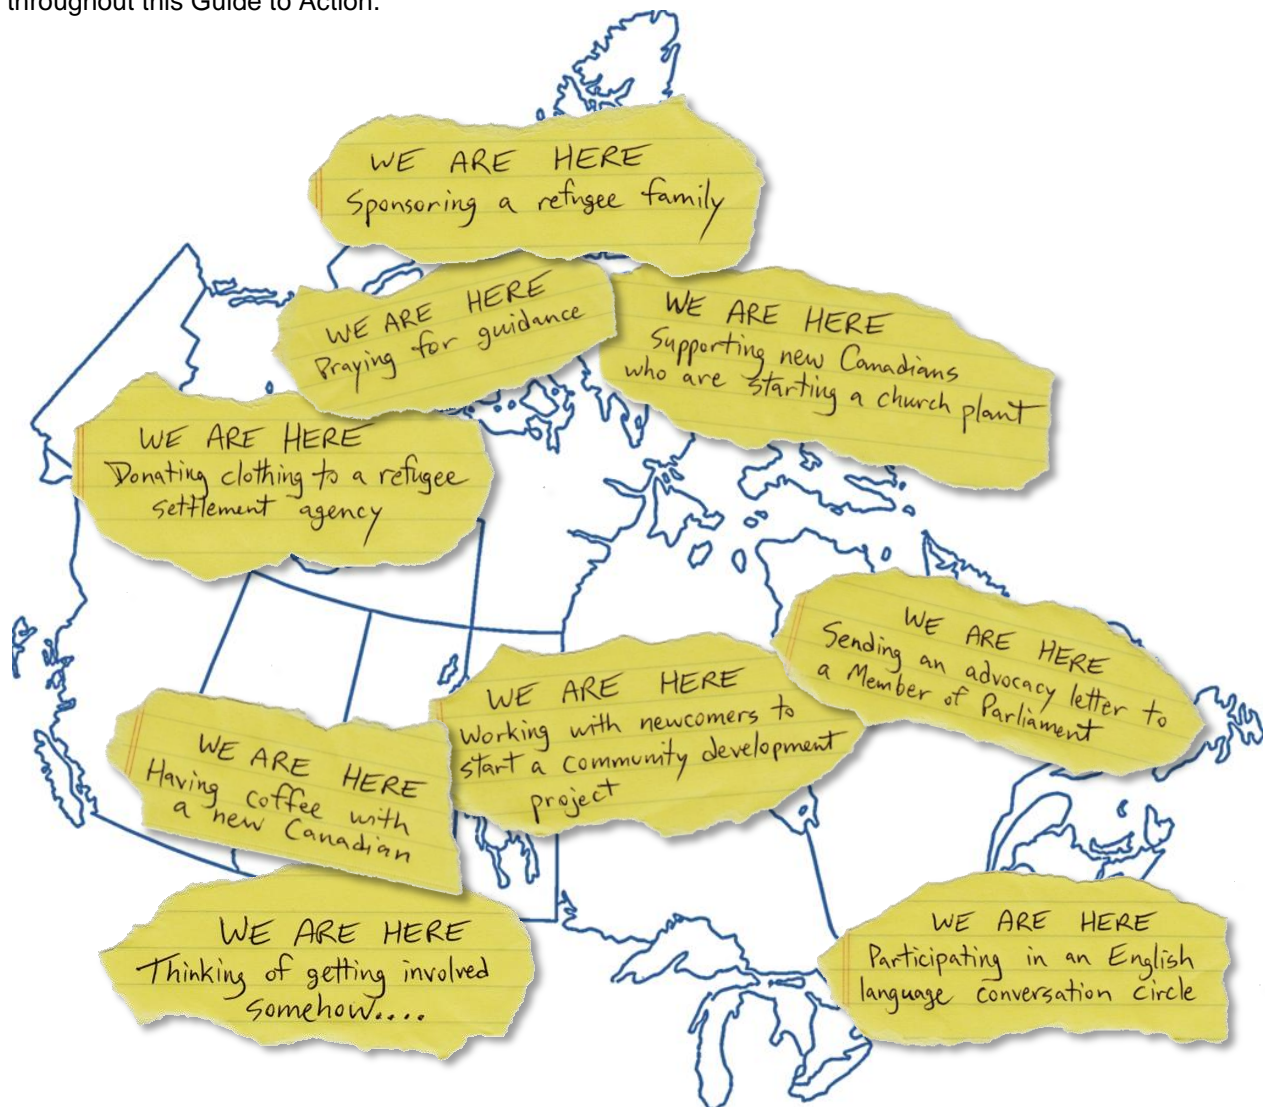 throughout this Guide to Action.
WE ARE HERE
Sponsoring a refugee family
WE ARE HERE
Praying for guidance
WE ARE HERE
Supporting new Canadians
who are starting a church plant
WE ARE HERE
Donating clothing to a refugee
settlement agency
WE ARE HERE
Sending an advocacy letter to
a Member of Parliament
WE ARE HERE
Working with newcomers to
start a community development
project
WE ARE HERE
Having coffee with
a new Canadian
WE ARE HERE
Thinking of getting involved
somehow....
WE ARE HERE
Participating in an English
language conversation circle